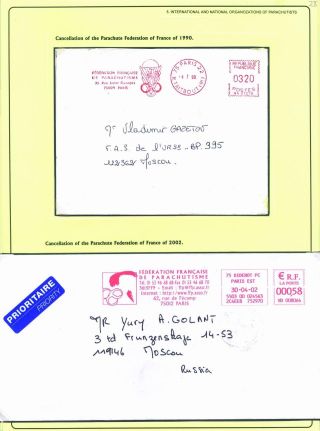 5. INTERNATIONAL AND NATIONAL ORGANIZATIONS OF PARACHUTISTS
Cancellation of the Parachute Federation of France of 1990.
FÉDÉRATION FRANÇAISE
DE PARACHUTISME
75009 PARIS
75 PARIS 22
R. TAITBOUT
RÉPUBLIQUE
FRANÇAISE
0320
POSTES
Mr Vladimir
F.A.S. de l'URSS - BP 395
Moscou
Cancellation of the Parachute Federation of France of 2002.
PRIORITAIRE
PRIORITY
FÉDÉRATION FRANÇAISE
DE PARACHUTISME
62, rue de Fécamp
75012 PARIS
PARIS EST
30-04-02
R.F.
LA POSTE
00058
MR Yury A. GOLANT
3 td Frunzenskaya 14-53
119146 Moscou
Russia